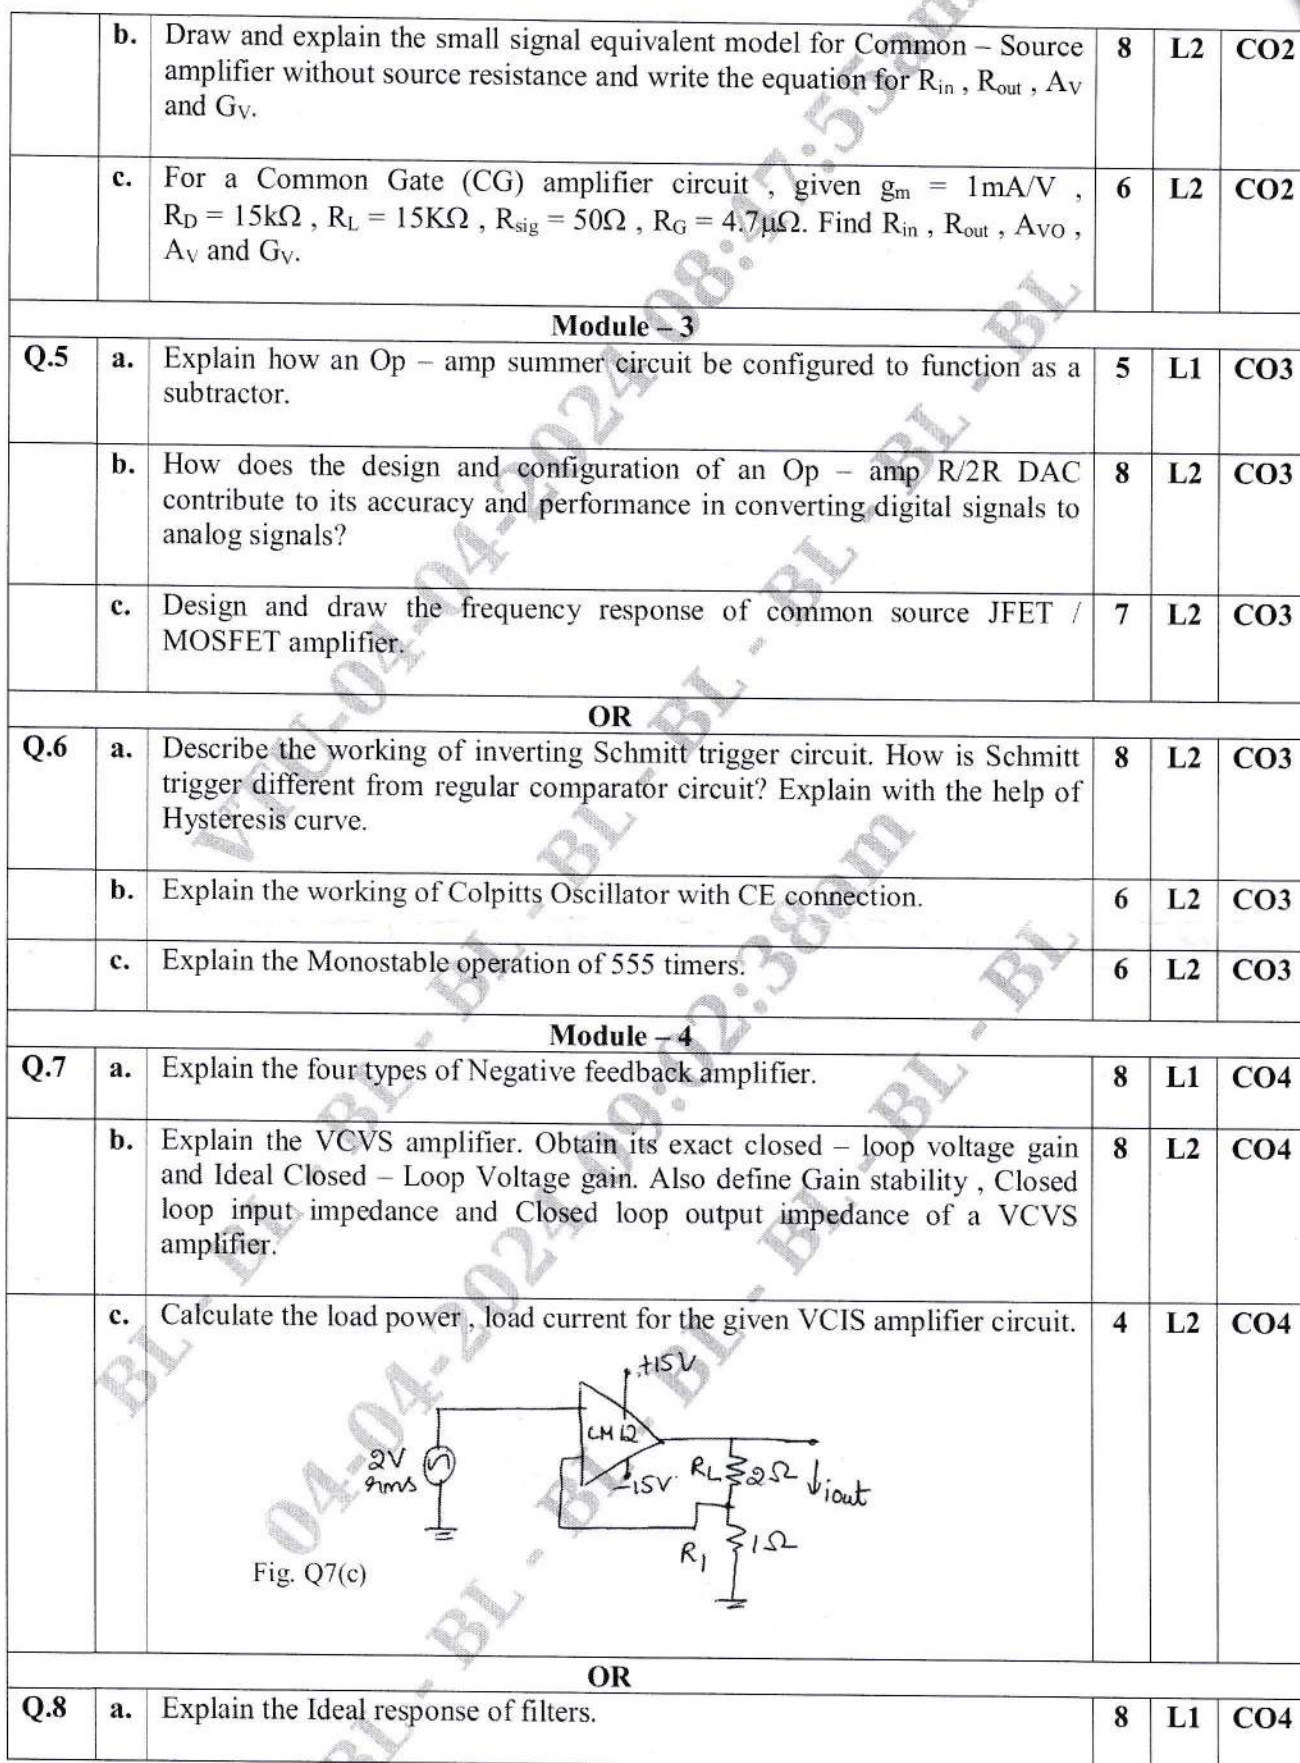 b. Draw and explain the small signal equivalent model for Common – Source 8 L2 CO2
amplifier without source resistance and write the equation for Rin , Rout , AV
and GV.
c. For a Common Gate (CG) amplifier circuit , given gm = 1mA/V , 6 L2 CO2
RD = 15kΩ , RL = 15KΩ , Rsig = 50Ω , RG = 4.7μΩ. Find Rin , Rout , AVO ,
AV and GV.
Module – 3
Q.5 a. Explain how an Op – amp summer circuit be configured to function as a 5 L1 CO3
subtractor.
b. How does the design and configuration of an Op – amp R/2R DAC 8 L2 CO3
contribute to its accuracy and performance in converting digital signals to
analog signals?
c. Design and draw the frequency response of common source JFET / 7 L2 CO3
MOSFET amplifier.
OR
Q.6 a. Describe the working of inverting Schmitt trigger circuit. How is Schmitt 8 L2 CO3
trigger different from regular comparator circuit? Explain with the help of
Hysteresis curve.
b. Explain the working of Colpitts Oscillator with CE connection. 6 L2 CO3
c. Explain the Monostable operation of 555 timers. 6 L2 CO3
Module – 4
Q.7 a. Explain the four types of Negative feedback amplifier. 8 L1 CO4
b. Explain the VCVS amplifier. Obtain its exact closed – loop voltage gain 8 L2 CO4
and Ideal Closed – Loop Voltage gain. Also define Gain stability , Closed
loop input impedance and Closed loop output impedance of a VCVS
amplifier.
c. Calculate the load power , load current for the given VCIS amplifier circuit. 4 L2 CO4
+15V
LM12
2V
rms
-15V
RL 2Ω
iout
R1 1Ω
Fig. Q7(c)
OR
Q.8 a. Explain the Ideal response of filters. 8 L1 CO4
VTU-04-04-2024 08:47:55am
BL - BL - BL - BL - BL - BL - BL
04-04-2024 09:02:38am
BL - BL - BL - BL - BL